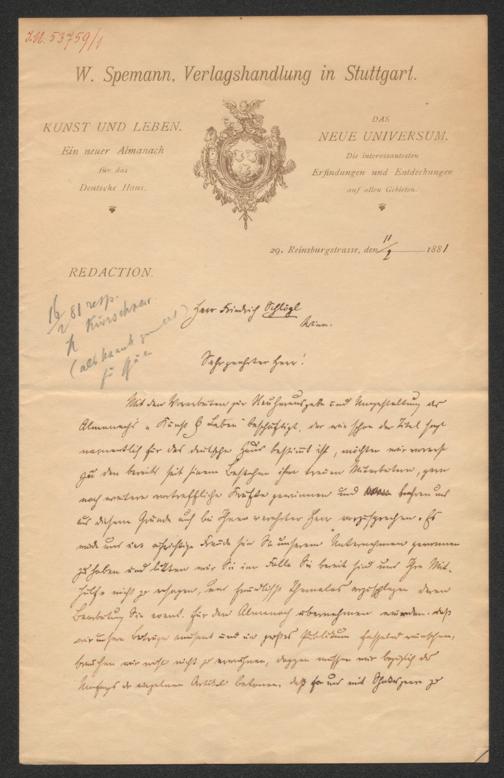 I.N. 53759/1
W. Spemann, Verlagshandlung in Stuttgart.
KUNST UND LEBEN.
Ein neuer Almanach
für das
Deutsche Haus.
DAS
NEUE UNIVERSUM.
Die interessantesten
Erfindungen und Entdeckungen
auf allen Gebieten.
29. Reinsburgstrasse, den 11/2 1881
REDACTION.
16/2 81 resp.
Kürschner
Herr Friedrich Schlögl
Wien.
Sehr geehrter Herr!
Mit den Vorarbeiten zur Neuherausgabe und Umgestaltung des
Almanachs "Kunst & Leben" beschäftigt, der wie schon der Titel sagt
namentlich für das deutsche Haus bestimmt ist, möchten wir
zu den bereits seit seinem Bestehen ihm treuen Mitarbeitern, gern
noch weitere vortreffliche Kräfte gewinnen und
aus diesem Grunde auch bei Ihnen verehrter Herr vorzusprechen. Es
würde uns eine aufrichtige Freude sein Sie unserem Unternehmen gewonnen
zu haben und bitten wir Sie im Falle Sie bereit sind uns Ihre Mit-
hülfe nicht zu versagen, uns freundlichst Themata vorzuschlagen deren
Bearbeitung Sie event. für den Almanach übernehmen würden. Daß
wir unsere Beiträge und ein großes Publikum fesselnd wünschen,
brauchen wir wohl nicht zu erwähnen, dagegen müssen wir bezüglich des
Umfangs der einzelnen Artikel betonen, daß